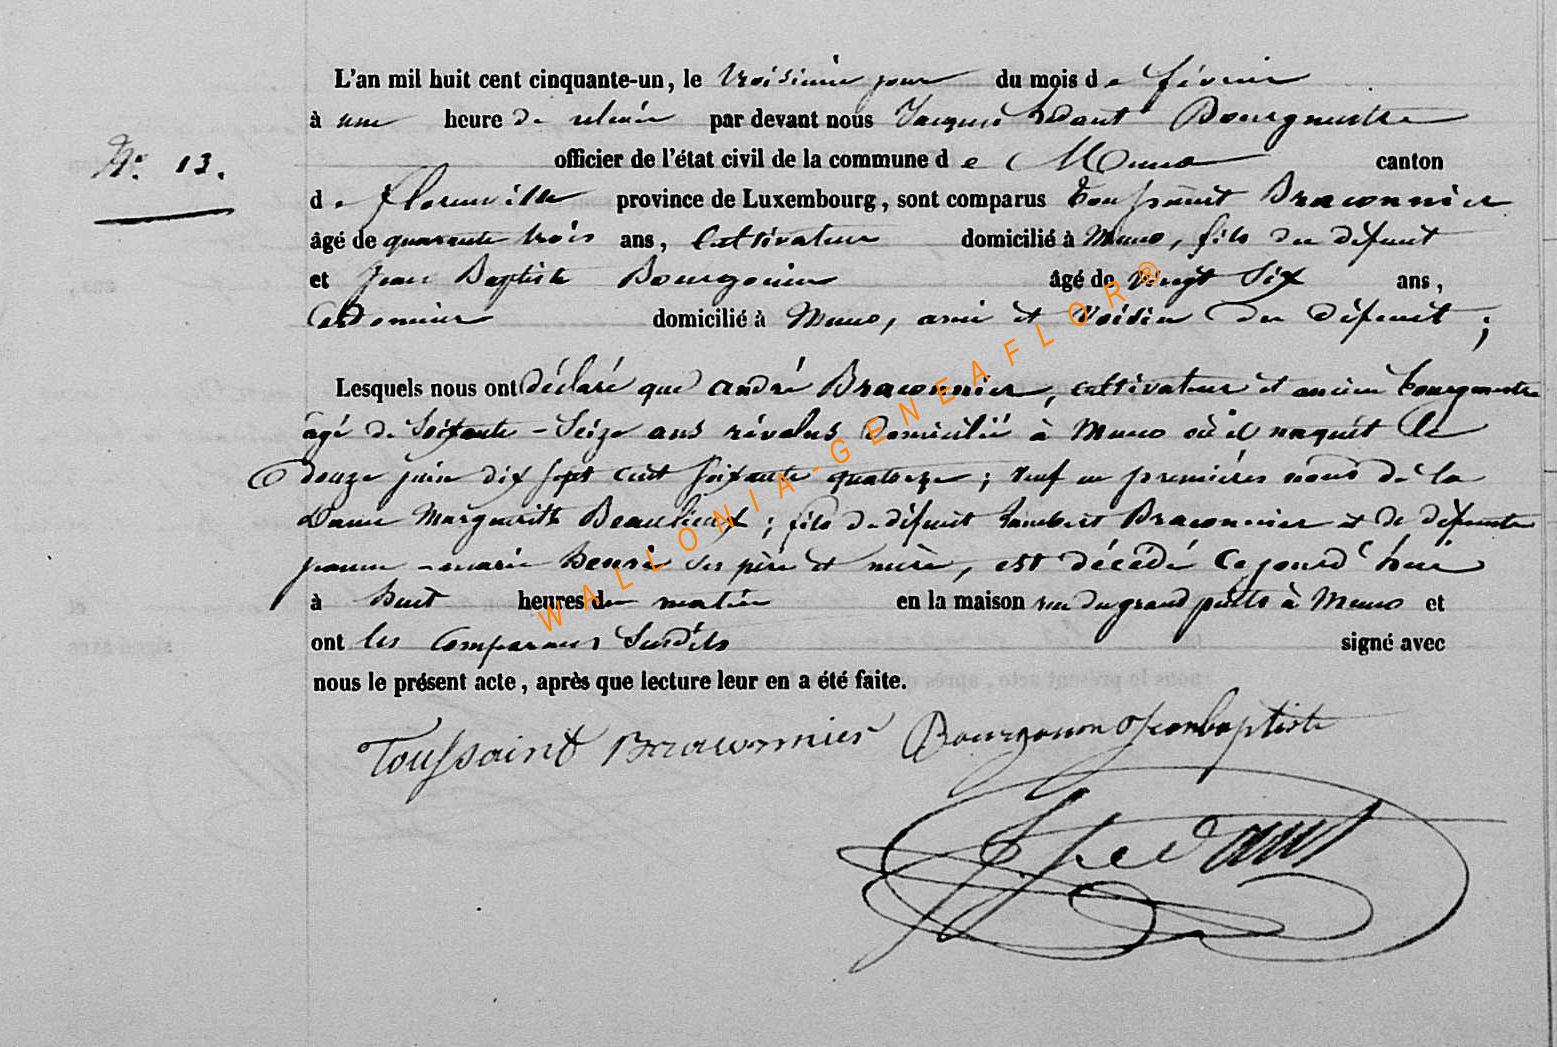 L'an mil huit cent cinquante-un, le troisième jour du mois de février
à une heure de relevée par devant nous Jacques Bourgmestre
N° 13.
officier de l'état civil de la commune de Muno canton
de Florenville province de Luxembourg, sont comparus Toussaint Braconnier
âgé de quarante trois ans, Cultivateur domicilié à Muno, fils du défunt
et Jean Baptiste Bourgoin âgé de vingt Six ans,
Cordonnier domicilié à Muno, ami et voisin du défunt ;
Lesquels nous ont déclaré que andré Braconnier, cultivateur et ancien bourgmestre
âgé de Soixante-Seize ans révolus domicilié à Muno où il naquit le
douze juin dix sept cent soixante quatorze ; veuf en premières noces de la
Dame Marguerite Beaulieux ; fils de défunt Lambert Braconnier et de défunte
jeanne-marie henri ses père et mère, est décédé Cejourd'hui
à huit heures du matin en la maison rue du grand puits à Muno et
ont les Comparans Susdits signé avec
nous le présent acte, après que lecture leur en a été faite.
Toussaint Braconnier Bourgouin Jeanbaptiste
WALLONIA-GENEAFLOR®